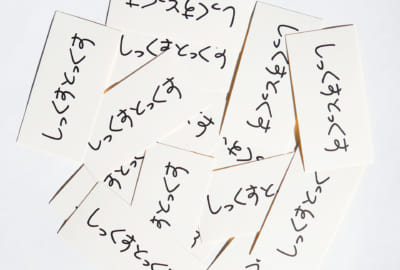 しっくすとっくす
しっくすとっくす
しっくすとっくす
しっくすとっくす
しっくすとっくす
しっくすとっくす
すとっ
すとっくす
しっくすと
しっくすとっく
しっくすとっくす